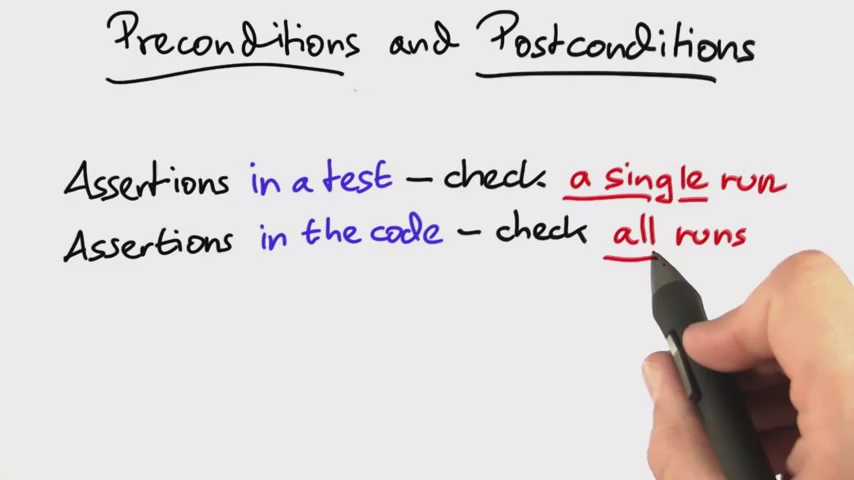 Preconditions and Postconditions
Assertions in a test – check a single run
Assertions in the code – check all runs